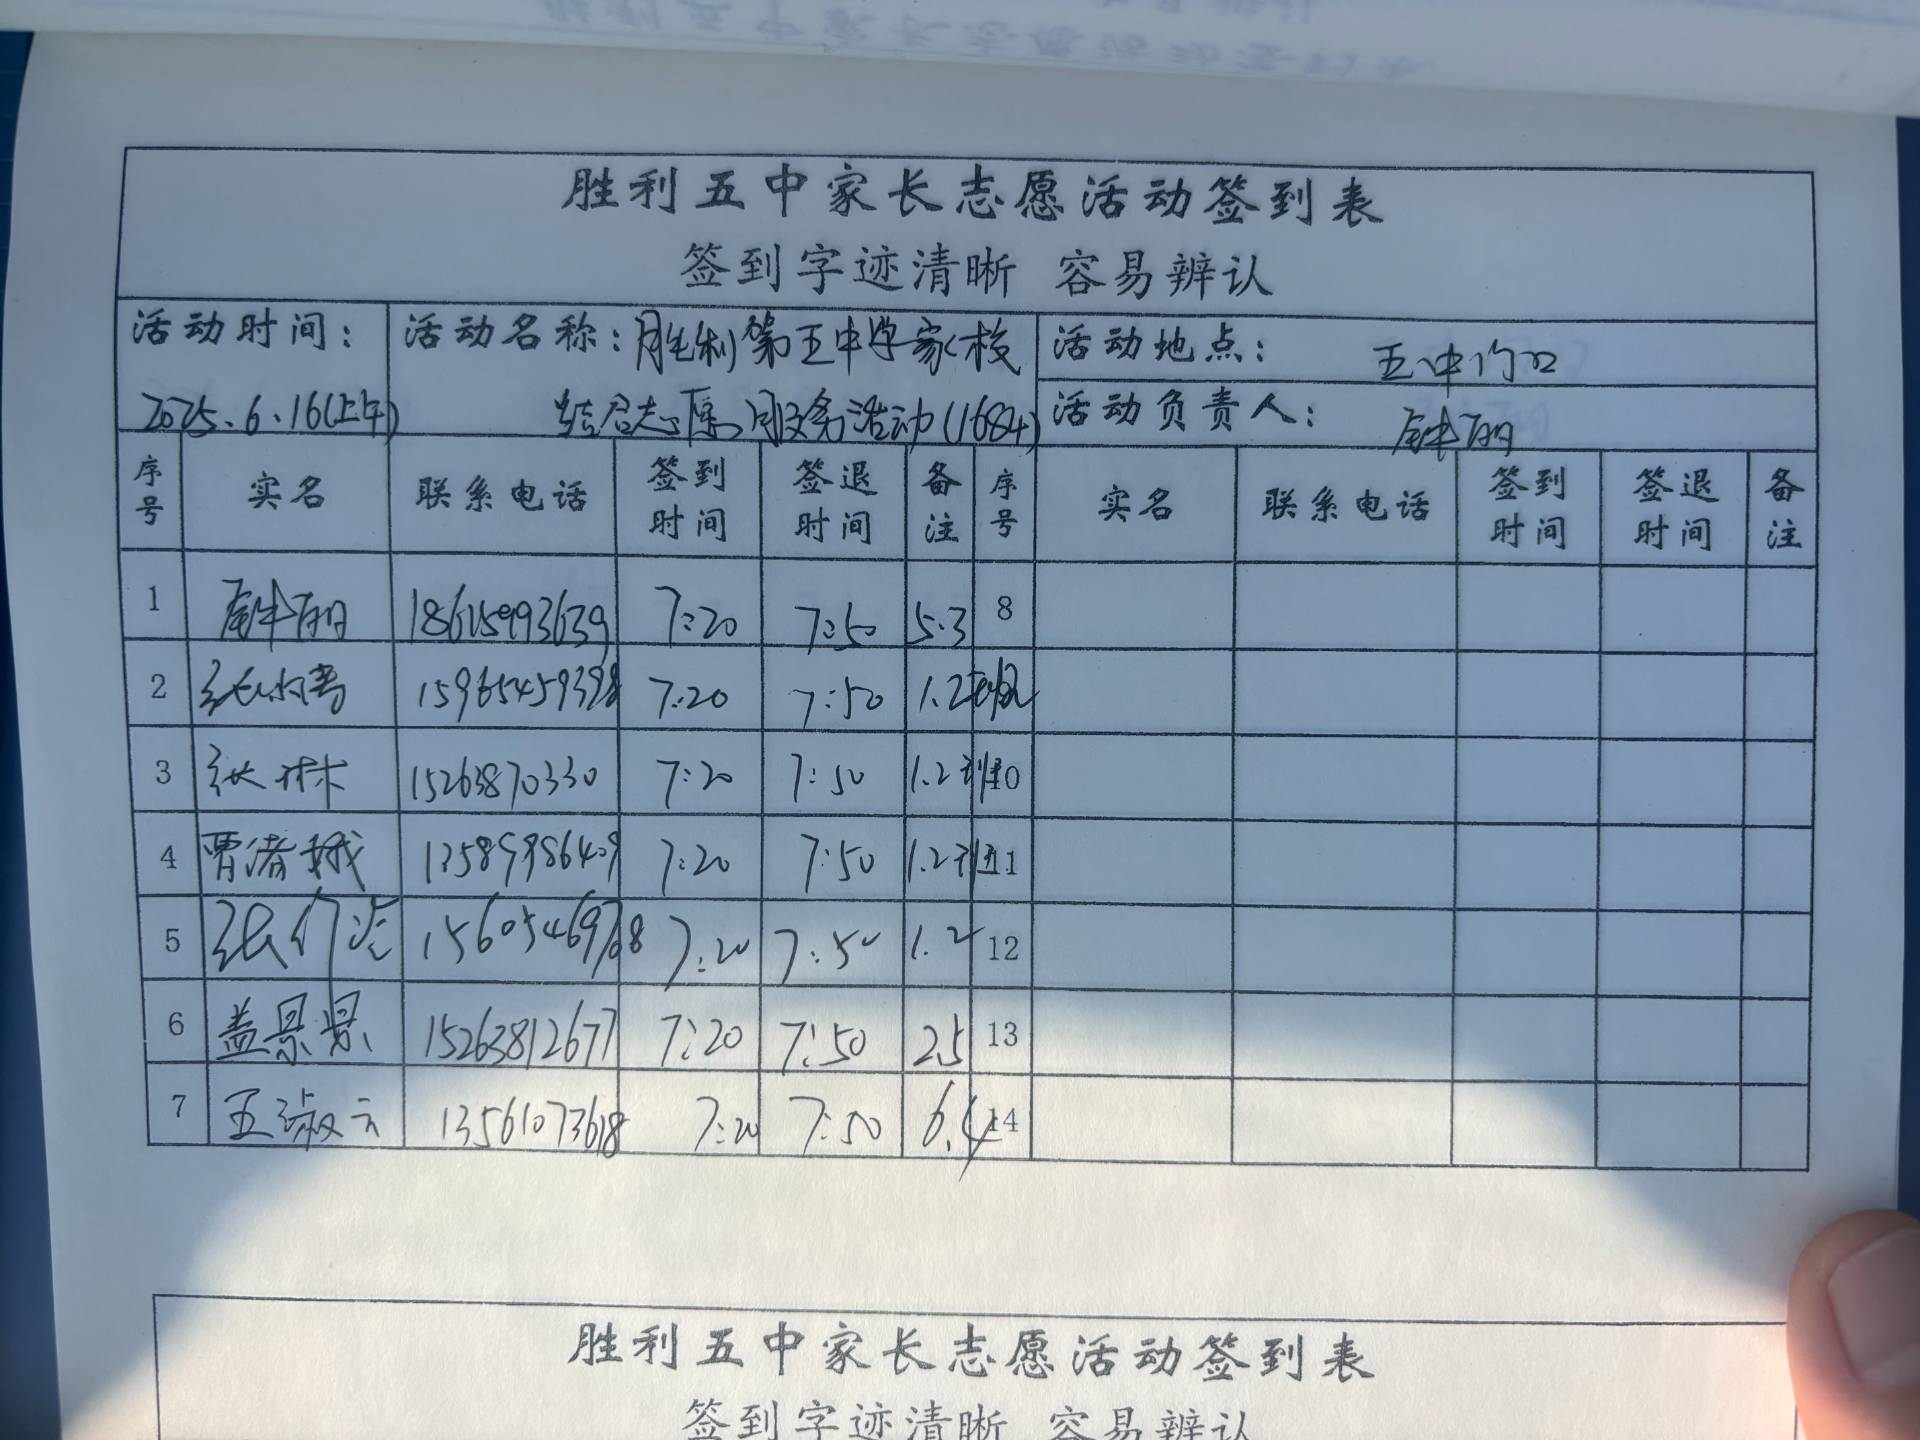 胜利五中家长志愿活动签到表
签到字迹清晰 容易辨认
活动时间： 活动名称：胜利第五中学家校 活动地点： 五中门口
2025.6.16(上午) 结合志愿服务活动(1684) 活动负责人：
序号 实名 联系电话 签到时间 签退时间 备注 序号 实名 联系电话 签到时间 签退时间 备注
1 18615993639 7:20 7:50 5.3 8
2 15965459398 7:20 7:50 1.2
3 张林 15263870330 7:20 7:50 1.2 10
4 13589986409 7:20 7:50 1.2 11
5 15605469708 7:20 7:50 1.2 12
6 盖景景 15263812677 7:20 7:50 2.5 13
7 王淑云 13561073618 7:20 7:50 6.4 14
胜利五中家长志愿活动签到表
签到字迹清晰 容易辨认